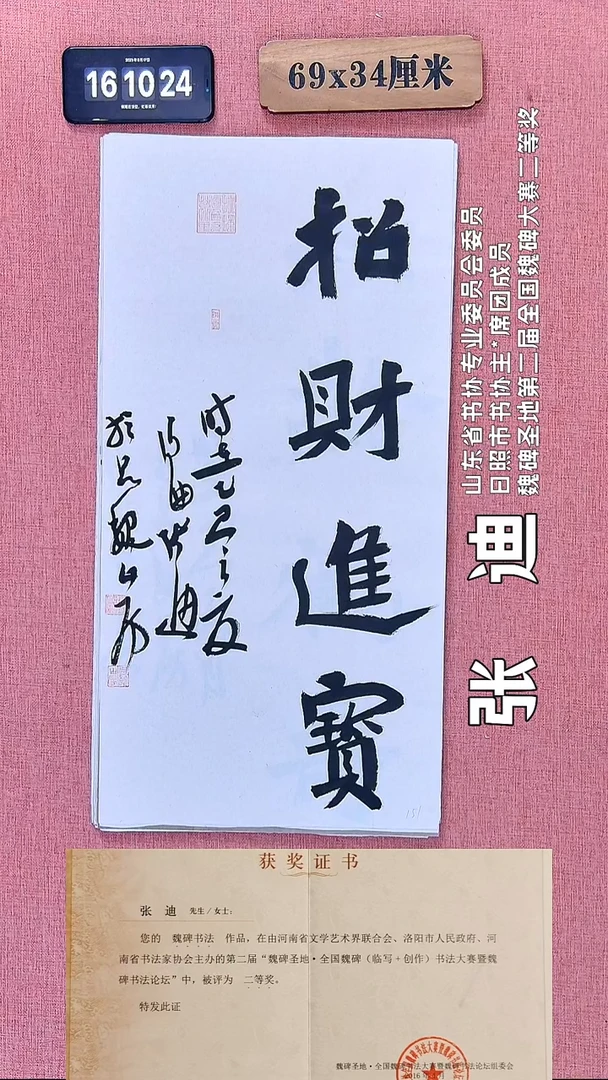 16 10 24
69x34厘米
招財進寶
时在乙巳之夏
张迪
山东省书协专业委员会委员
日照市书协主*席团成员
魏碑圣地第二届全国魏碑大赛二等奖
张 迪
151
获奖证书
张 迪 先生/女士：
您的 魏碑书法 作品，在由河南省文学艺术界联合会、洛阳市人民政府、河
南省书法家协会主办的第二届“魏碑圣地·全国魏碑（临写+创作）书法大赛暨魏
碑书法论坛”中，被评为 二等奖。
特发此证
魏碑圣地·全国魏碑书法大赛暨魏碑书法论坛组委会